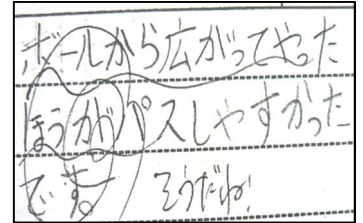 ボールから広がってやった
ほうがパスしやすかった
です。 そうだね!